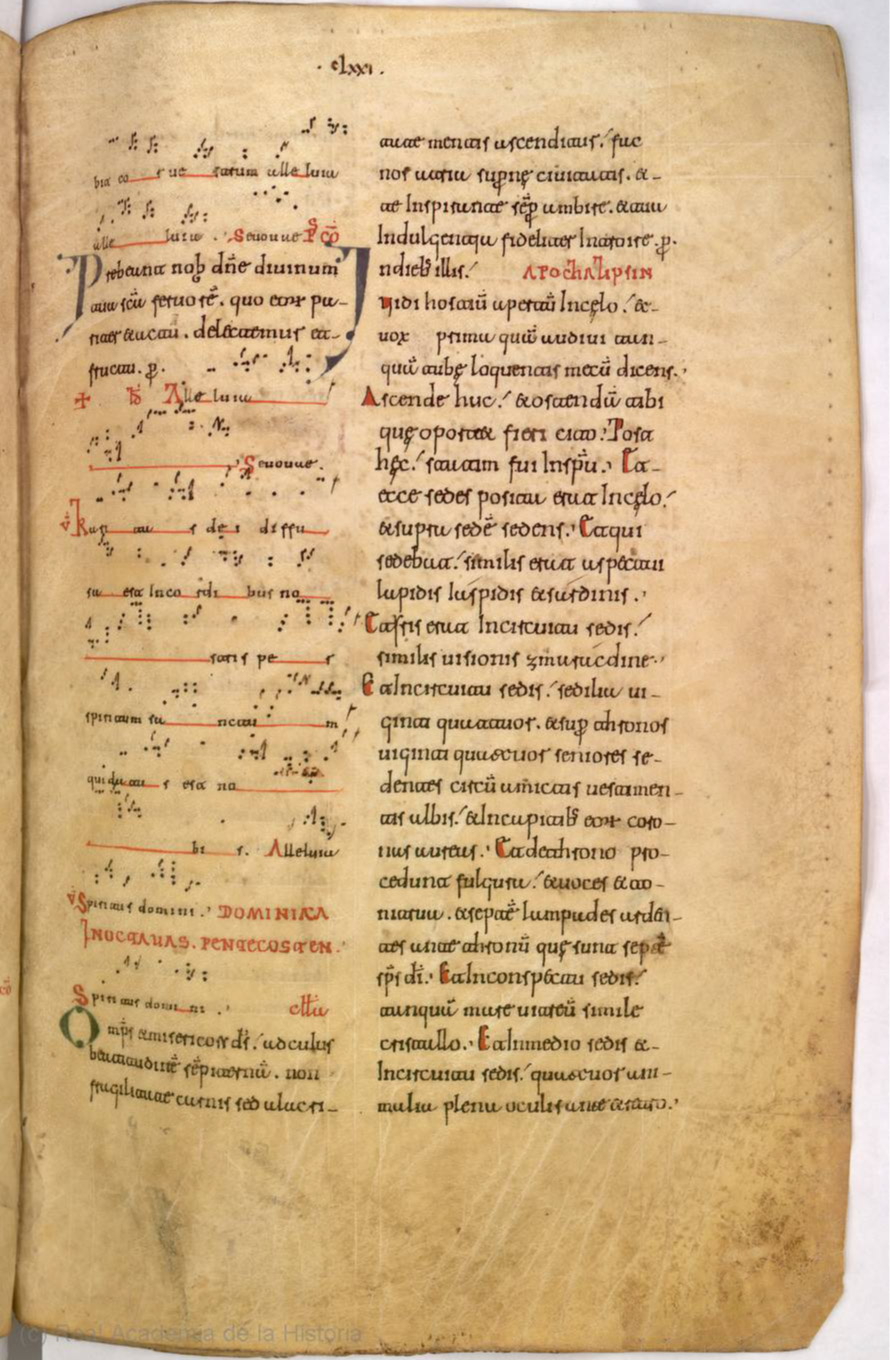 clxxi.
bis co r ue rtatum alleluia
alle luia. Seuouae P̃cõ
Prebeant nob dñe diuinum
tua scã feruorẽ. quo eor pa-
riter & actu. delectemur et
fructu. p.
Alle luia
Seuouae.
V Kari ta s de i diffu
sa est Inco rdi bus no
stris pe r
spiritum sa nctu m
qui da tu s est no
bi s. Alleluia
V Spiritus domini. DOMINIKA
INOCTAUAS. PENTECOSTEN.
Spiritus domi ni. cltã
Omps & misericors ds. ad cultus
fragilitate carnis sed alacri-
tate mentis ascendtius. fac
nos atria supnę ciuitatis. &
te Inspirante sẽp ambire. & tua
Indulgentia fideliter Introire. p.
ndieb illis. APOCHALIPSIN
Uidi hostiũ apertũ Incęlo. &-
uox prima quã audiui tan-
quã tubę loquentis mecũ dicens.
Ascende huc. & ostendã tibi
quę oportet fieri cito. Post
hęc. statim fui Inspũ. Et
ecce sedes posita erat Incęlo.
& supra sedẽ sedens. Et qui
sedebat. similis erat aspectui
lapidis Iaspidis & sardinis.
Et Iris erat Incircuitu sedis.
similis uisionis zmaracdine.
Et Incircuitu sedis. sedilia ui-
ginti quattuor. & sup thronos
uiginti quatuor seniores se-
dentes circũ amicti uestimen-
tis albis. & Incapitib eor coro-
nas aureas. Et de throno pro-
cedunt fulgura. & uoces & to-
nitrua. & septẽ lampades arden-
tes ante thronũ quę sunt septẽ
sps di. Et Inconspectu sedis.
tanquã mare uitreũ simile
cristallo. Et Inmedio sedis &-
Incircuitu sedis. quatuor ani-
malia plena oculis ante & retro.